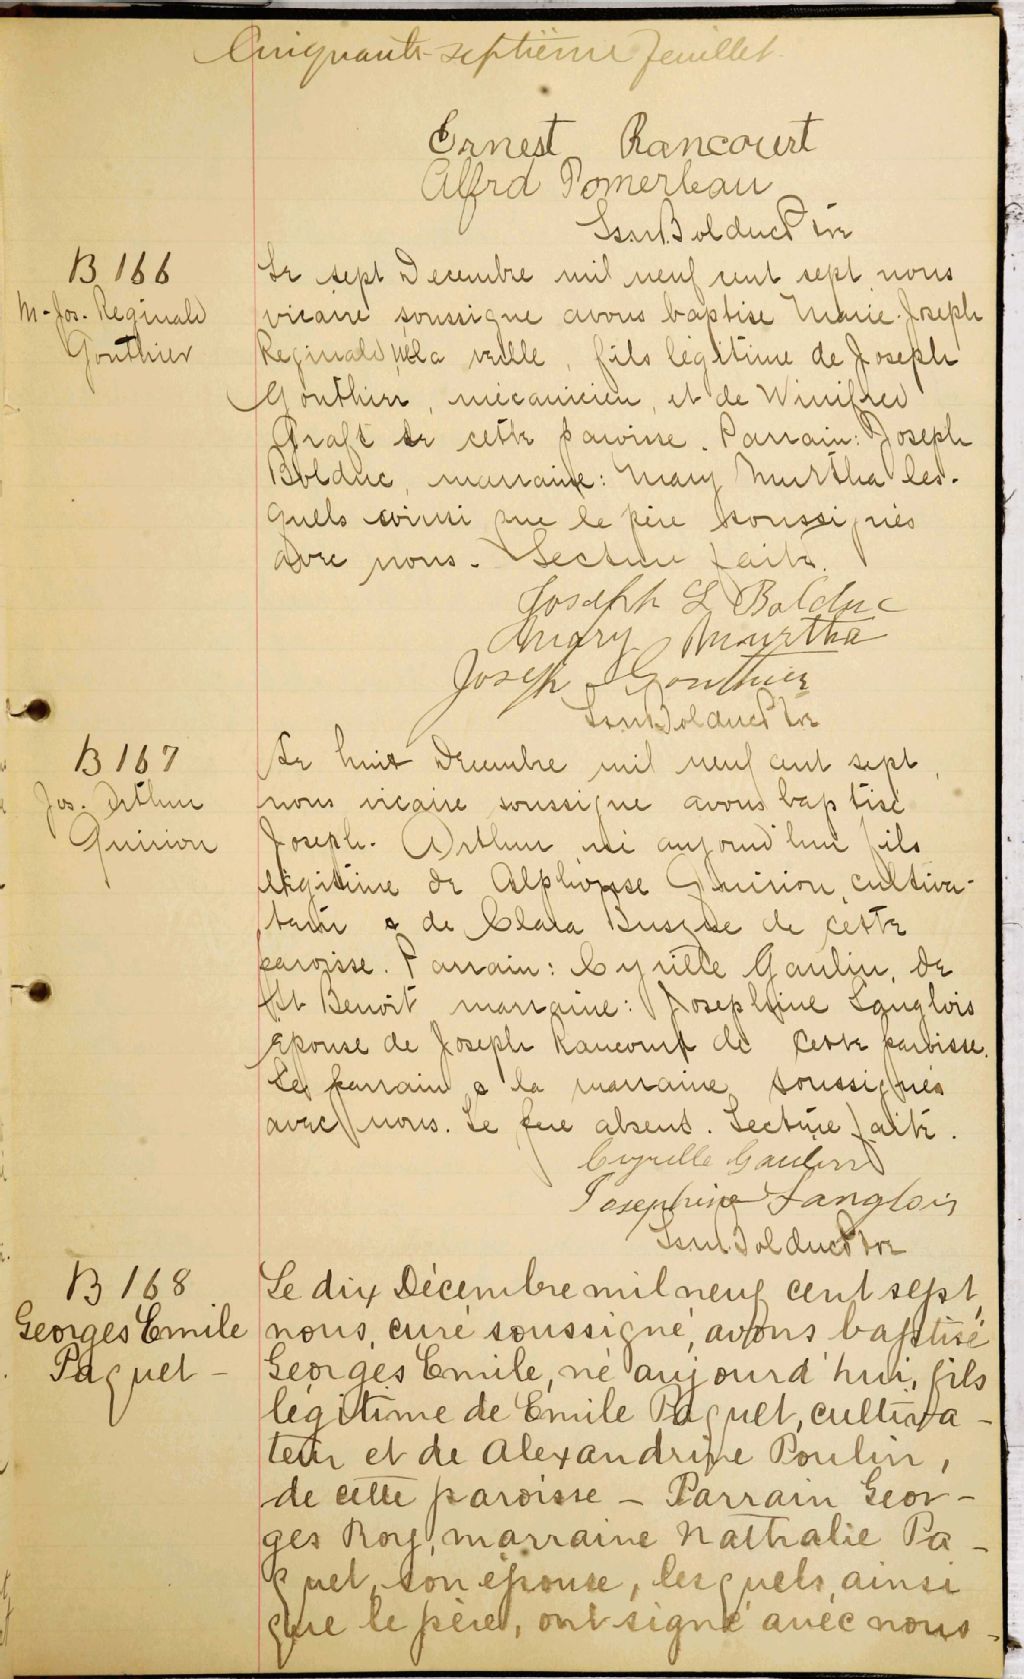 Cinquante-septième feuillet.
Ernest Rancourt
Alfrd Pomerleau
Bolduc Ptre
B 166
M-Jos. Reginald
Gonthier
Le sept Decembre mil neuf cent sept nous
vicaire soussigne avons baptise Marie-Joseph
Reginald né la veille, fils légitime de Joseph
Gonthier, mécanicien, et de Winifred
Craft de cette paroisse. Parrain: Joseph
Bolduc, marraine: Mary Murtha les-
quels ainsi que le père soussignés
avec nous. Lecture faite.
Joseph L Bolduc
Mary Murtha
Joseph Gonthier
Bolduc Ptre
B 167
Jos. Arthur
Quirion
Le huit Decembre mil neuf cent sept,
nous vicaire soussigne avons baptisé
Joseph-Arthur né aujourd'hui fils
légitime de Alphonse Quirion cultiva-
teur & de Clara Busque de cette
paroisse. Parrain: Cyrille Gaulin, de
St Benoît marraine: Josephine Langlois
épouse de Joseph Rancourt de cette paroisse.
Le parrain & la marraine soussignés
avec nous. Le père absent. Lecture faite.
Cyrille Gaulin
Josephine Langlois
Bolduc Ptre
B 168
Georges Emile
Paquet -
Le dix Décembre mil neuf cent sept,
nous, curé soussigné, avons baptisé
Georges Emile, né aujourd'hui, fils
légitime de Emile Paquet, cultiva-
teur et de Alexandrine Poulin,
de cette paroisse - Parrain Geor-
ges Roy, marraine Nathalie Pa-
quet, son épouse, lesquels ainsi
que le père, ont signé avec nous -